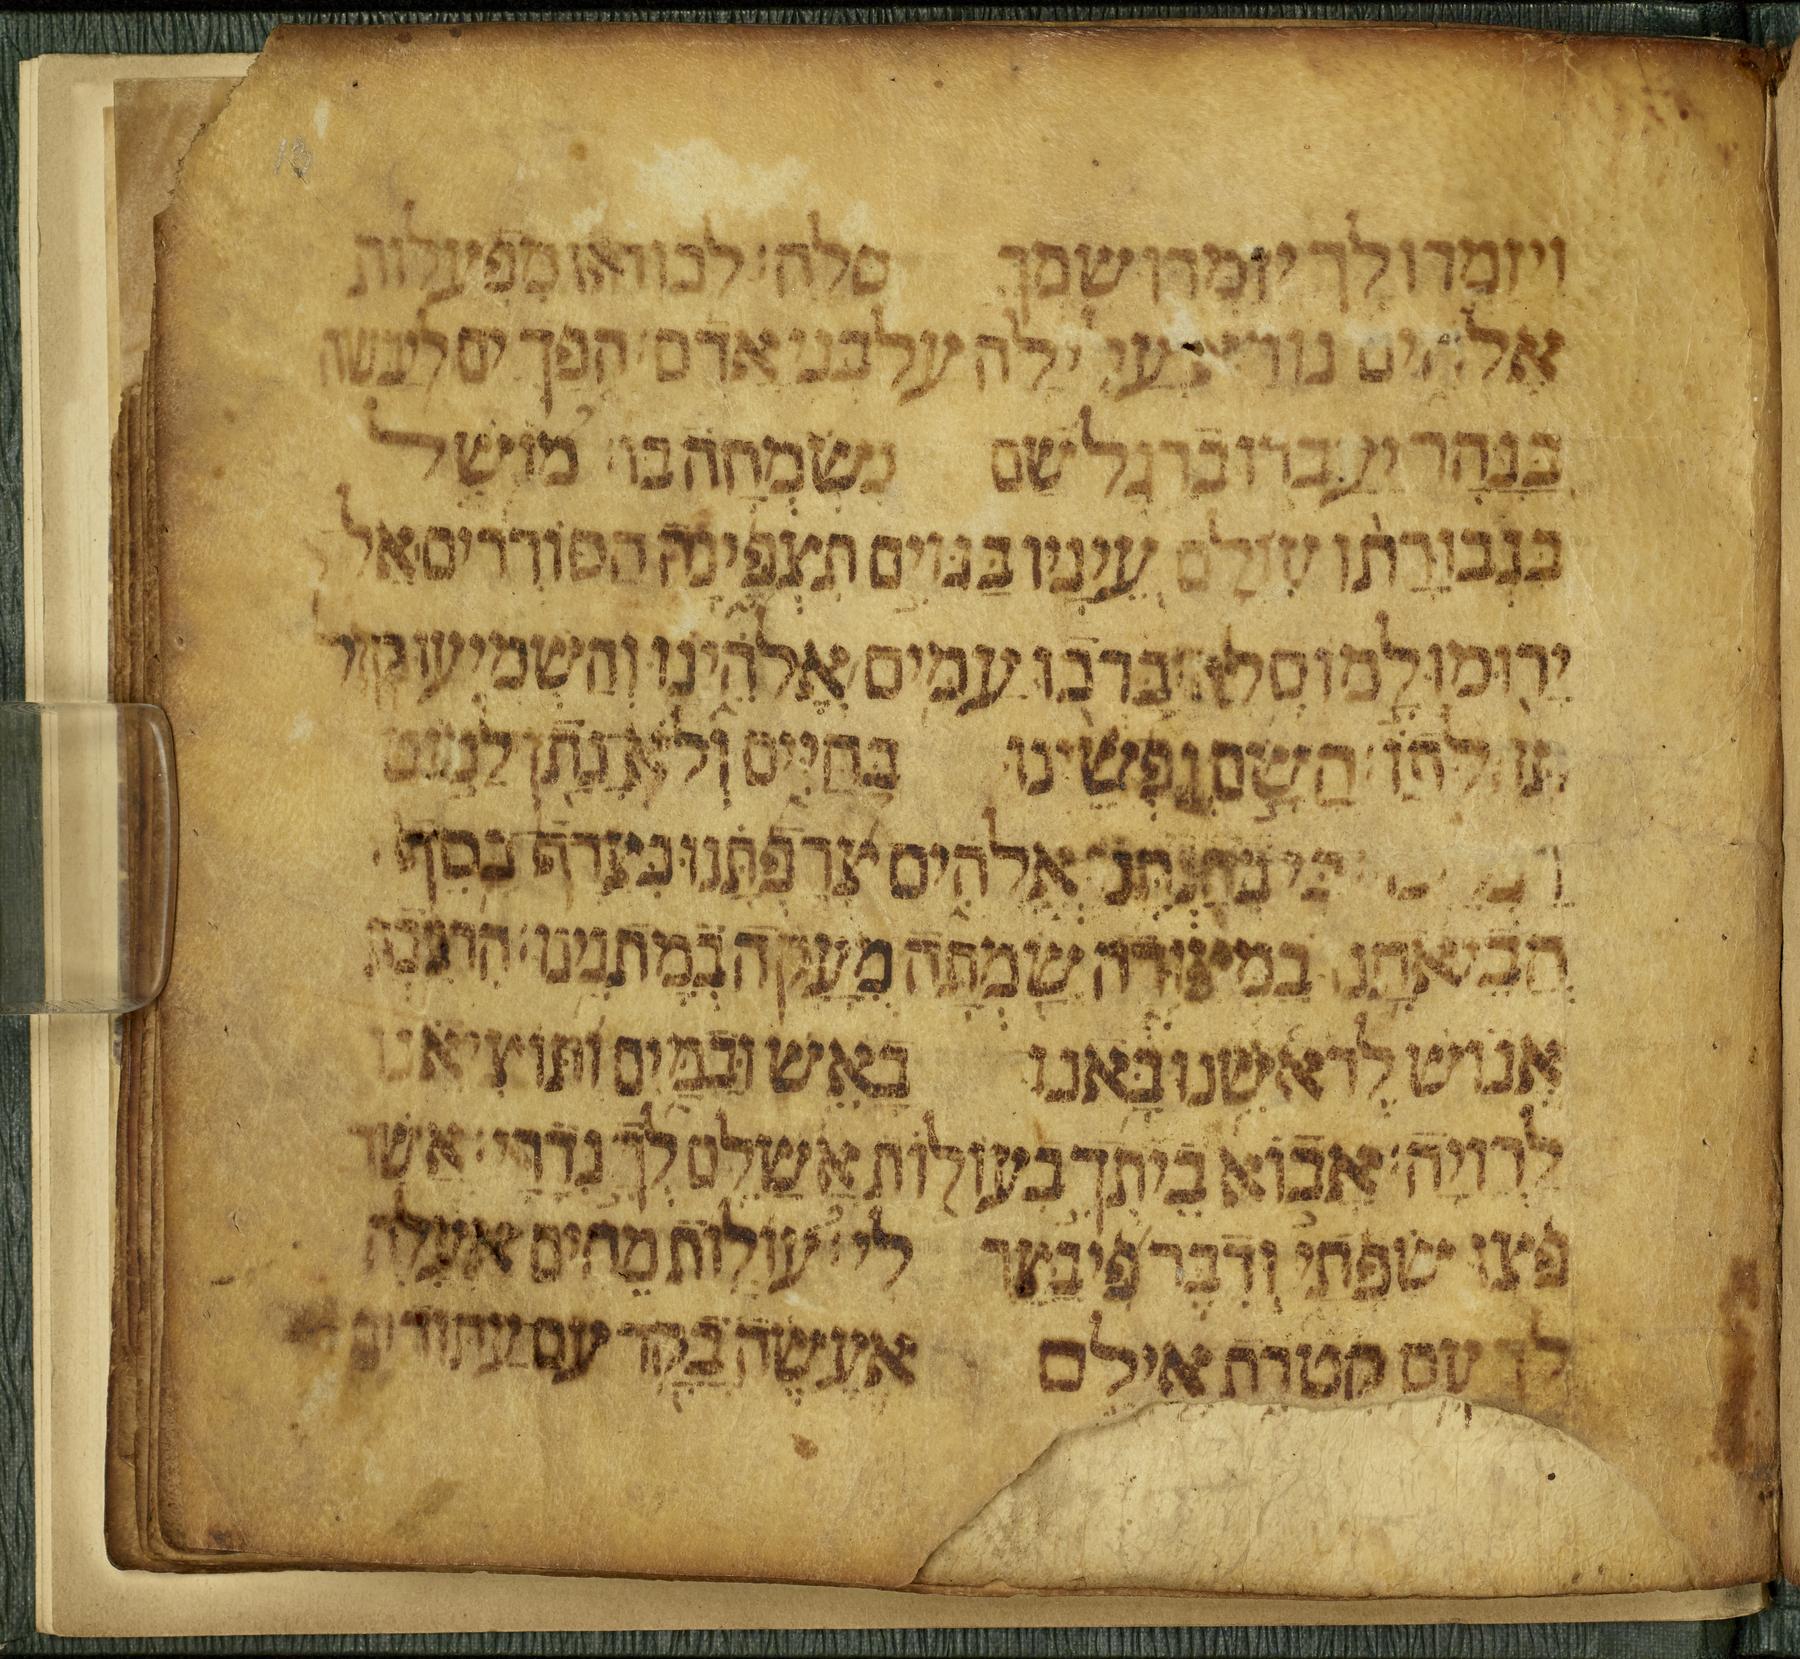 ויזמרו לך יזמרו שמך סלה׃ לכו וראו מפעלות
אלהים נורא עלילה על בני אדם׃ הפך ים ליבשה
בנהר יעברו ברגל שם נשמחה בו׃ מושל
בגבורתו עולם עיניו בגוים תצפינה הסוררים אל
ירומו למו סלה׃ ברכו עמים אלהינו והשמיעו קול
תהלתו׃ השם נפשינו בחיים ולא נתן למוט
כי בחנתנו אלהים צרפתנו כצרף כסף׃
הביאתנו במצודה שמתה מעקה במתנינו׃ הרכבת
אנוש לראשנו באנו באש ובמים ותוציאנו
לרויה׃ אבוא ביתך בעולות אשלם לך נדרי׃ אשר
פצו שפתי ודבר פי בצר לי׃ עולות מחים אעלה
לך עם קטרת אילם אעשה בקר עם עתודים